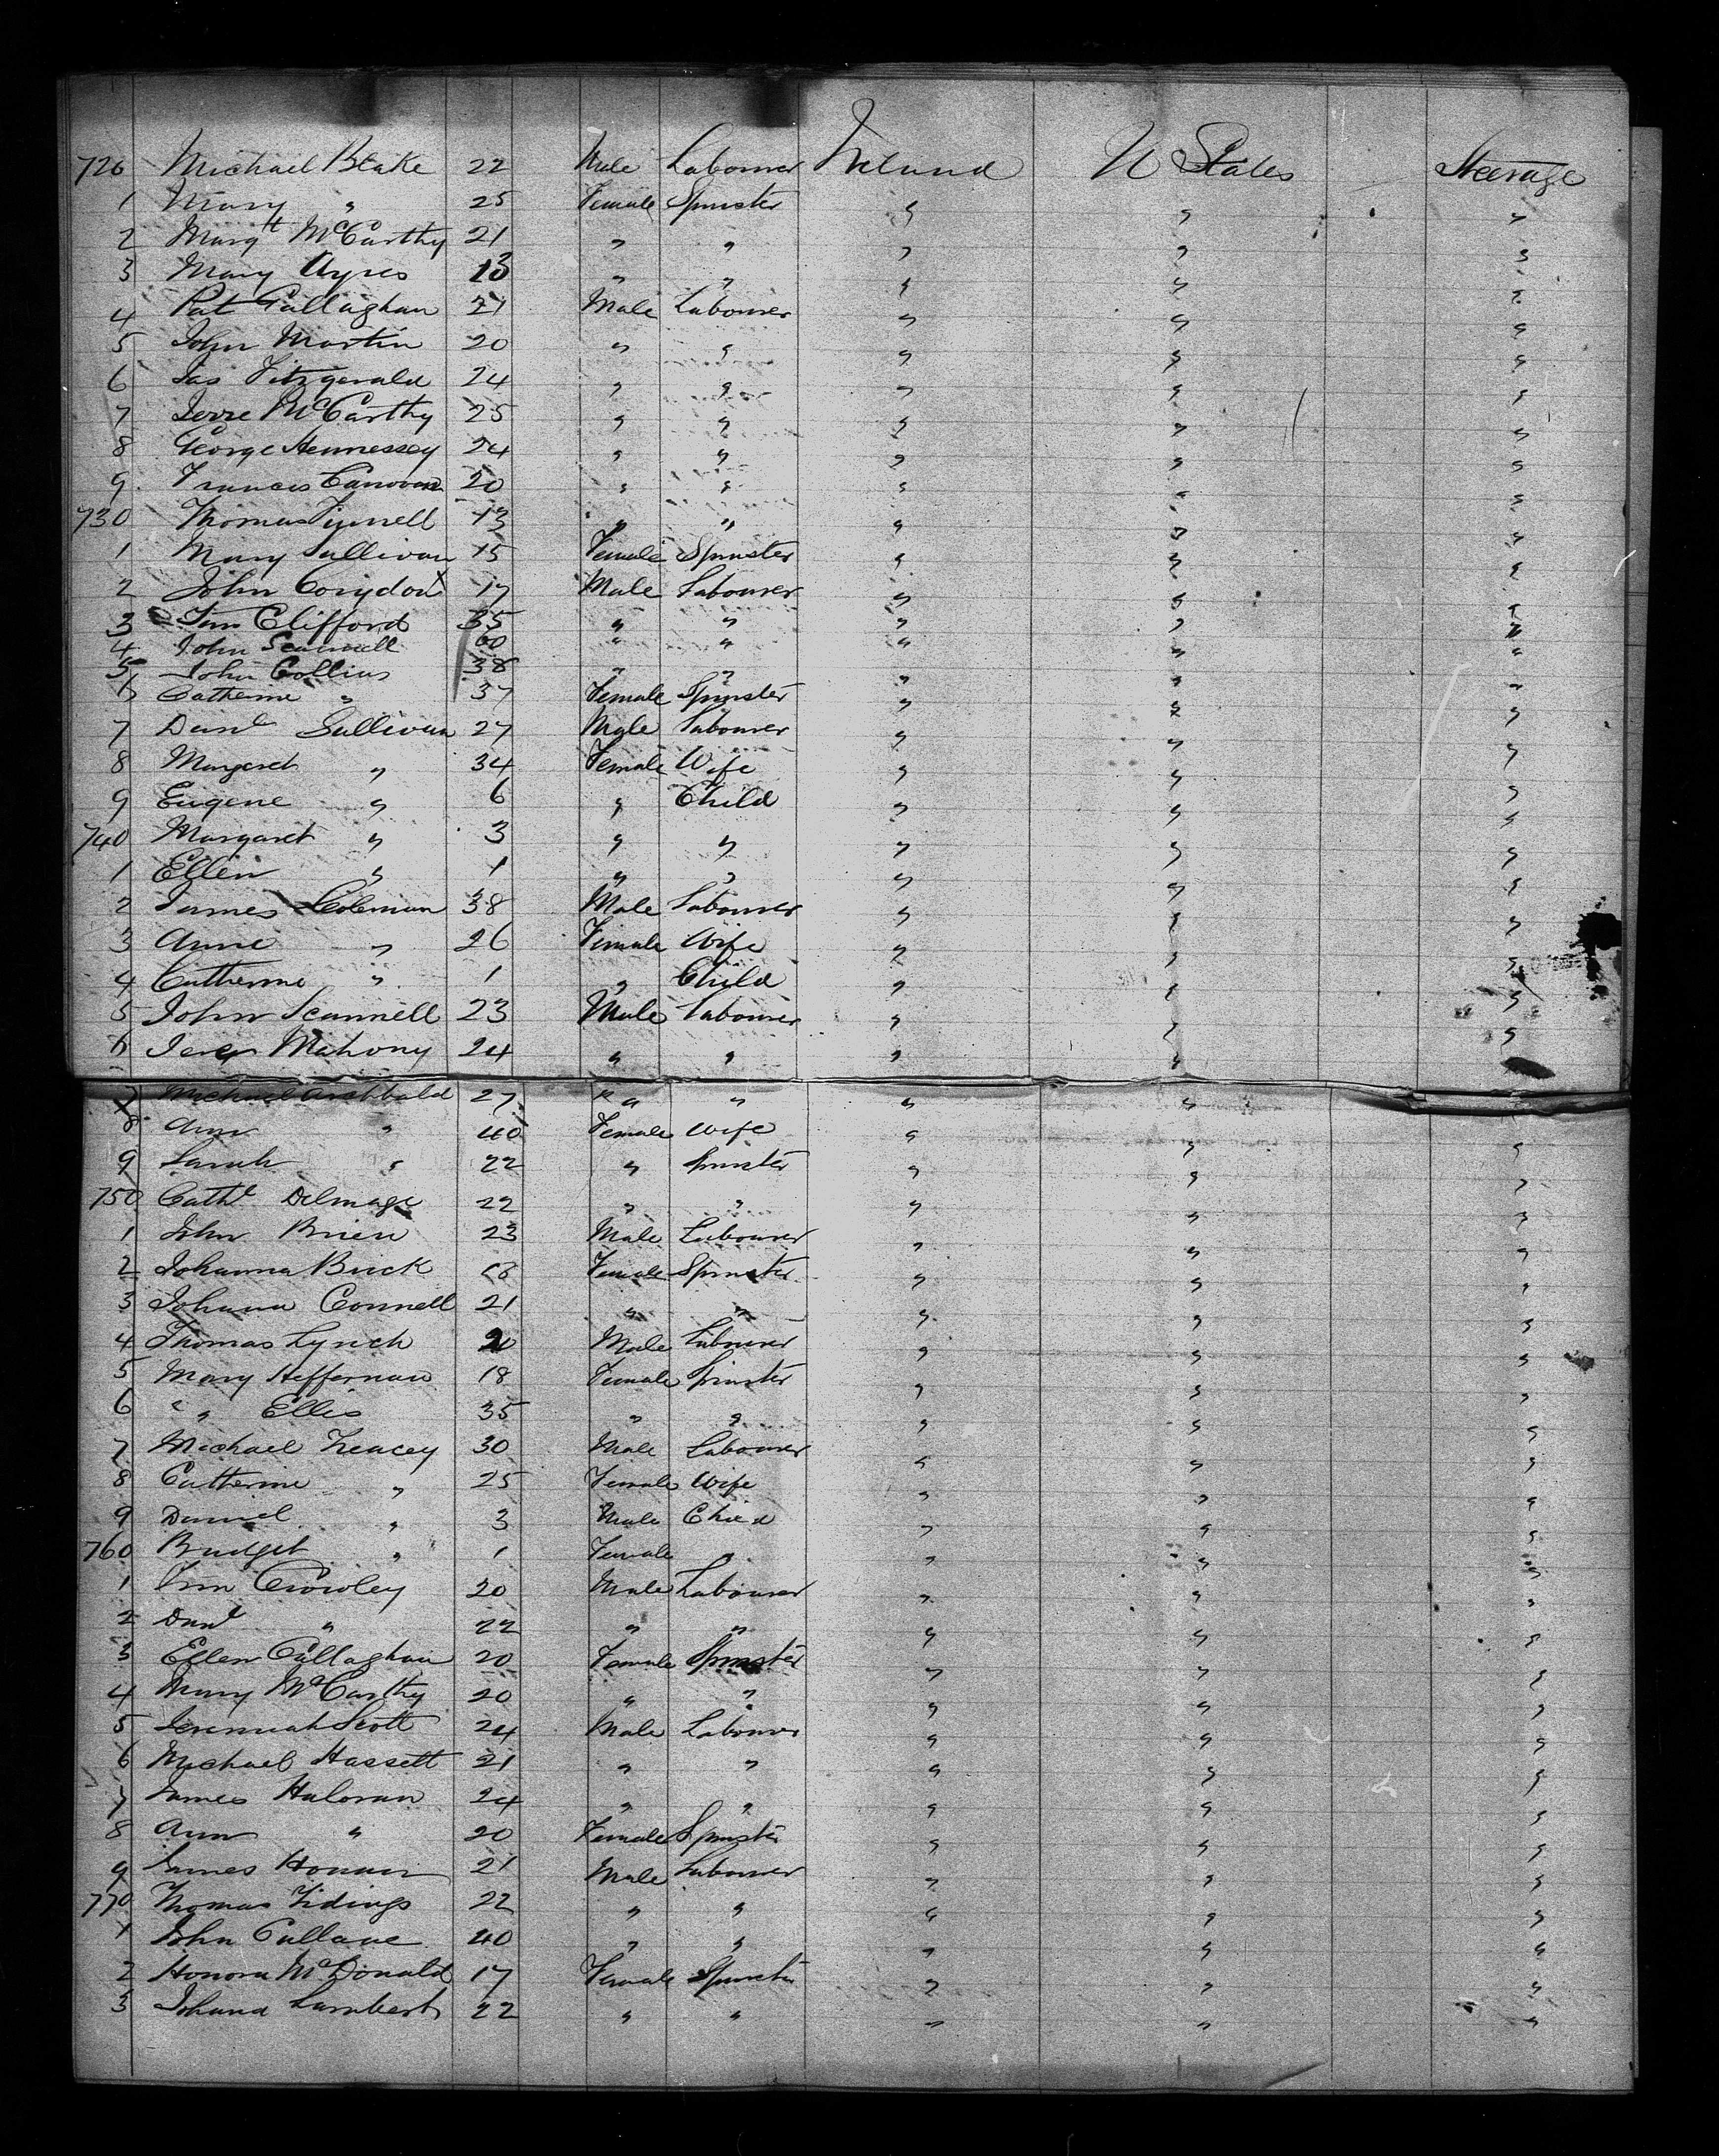 720 Michael Blake 22 Male Labourer Ireland U States Steerage
1 Mary " 25 Female Spinster " " "
2 Margt McCarthy 21 " " " " "
3 Mary Ayres 13 " " " " "
4 Pat Callaghan 21 Male Labourer " " "
5 John Martin 20 " " " " "
6 Jas Fitzgerald 24 " " " " "
7 Jerre McCarthy 25 " " " " "
8 George Hennessey 24 " " " " "
9 Frances Canovan 20 " " " " "
730 Thomas 13 " " " " "
1 Mary Sullivan 15 Female Spinster " " "
2 John Corydon 17 Male Labourer " " "
3 Tim Clifford 35 " " " " "
4 John Scannell 60 " " " " "
5 John Collins 38 " " " " "
6 Catherine " 37 Female Spinster " " "
7 Danl Sullivan 27 Male Labourer " " "
8 Margaret " 34 Female Wife " " "
9 Eugene " 6 " Child " " "
740 Margaret " 3 " " " " "
1 Ellen " 1 " " " " "
2 James Coleman 38 Male Labourer " " "
3 Anne " 26 Female Wife " " "
4 Catherine " 1 " Child " " "
5 John Scannell 23 Male Labourer " " "
6 Mahony 24 " " " "
7 Michael Archbald 27 " " " "
8 Ann " 40 Female Wife " " "
9 Sarah " 22 " Spinster " " "
750 Cathe Delmage 22 " " " " "
1 John Brien 23 Male Labourer " " "
2 Johanna Brick 18 Female Spinster " " "
3 Johana Connell 21 " " " " "
4 Thomas Lynch 20 Male Labourer " " "
5 Mary Heffernan 18 Female Spinster " " "
6 " Ellis 35 " " " " "
7 Michael 30 Male Labourer " " "
8 Catherine " 25 Female Wife " " "
9 Daniel " 3 Male Child " " "
760 Bridget " 1 Female " " " "
1 Crowley 20 Male Labourer " " "
2 Danl " 22 " " " " "
3 Ellen Callaghan 20 Female Spinster " " "
4 Mary McCarthy 20 " " " " "
5 Jeremiah Scott 24 Male Labourer " " "
6 Michael Hassett 21 " " " " "
7 James Haloran 24 " " " " "
8 Ann " 20 Female Spinster " " "
9 James Honan 21 Male Labourer " " "
770 Thomas Tidings 22 " " " " "
1 John Cullane 40 " " " " "
2 Honora McDonald 17 Female Spinster " " "
3 Johana Lambert 22 " " " " "